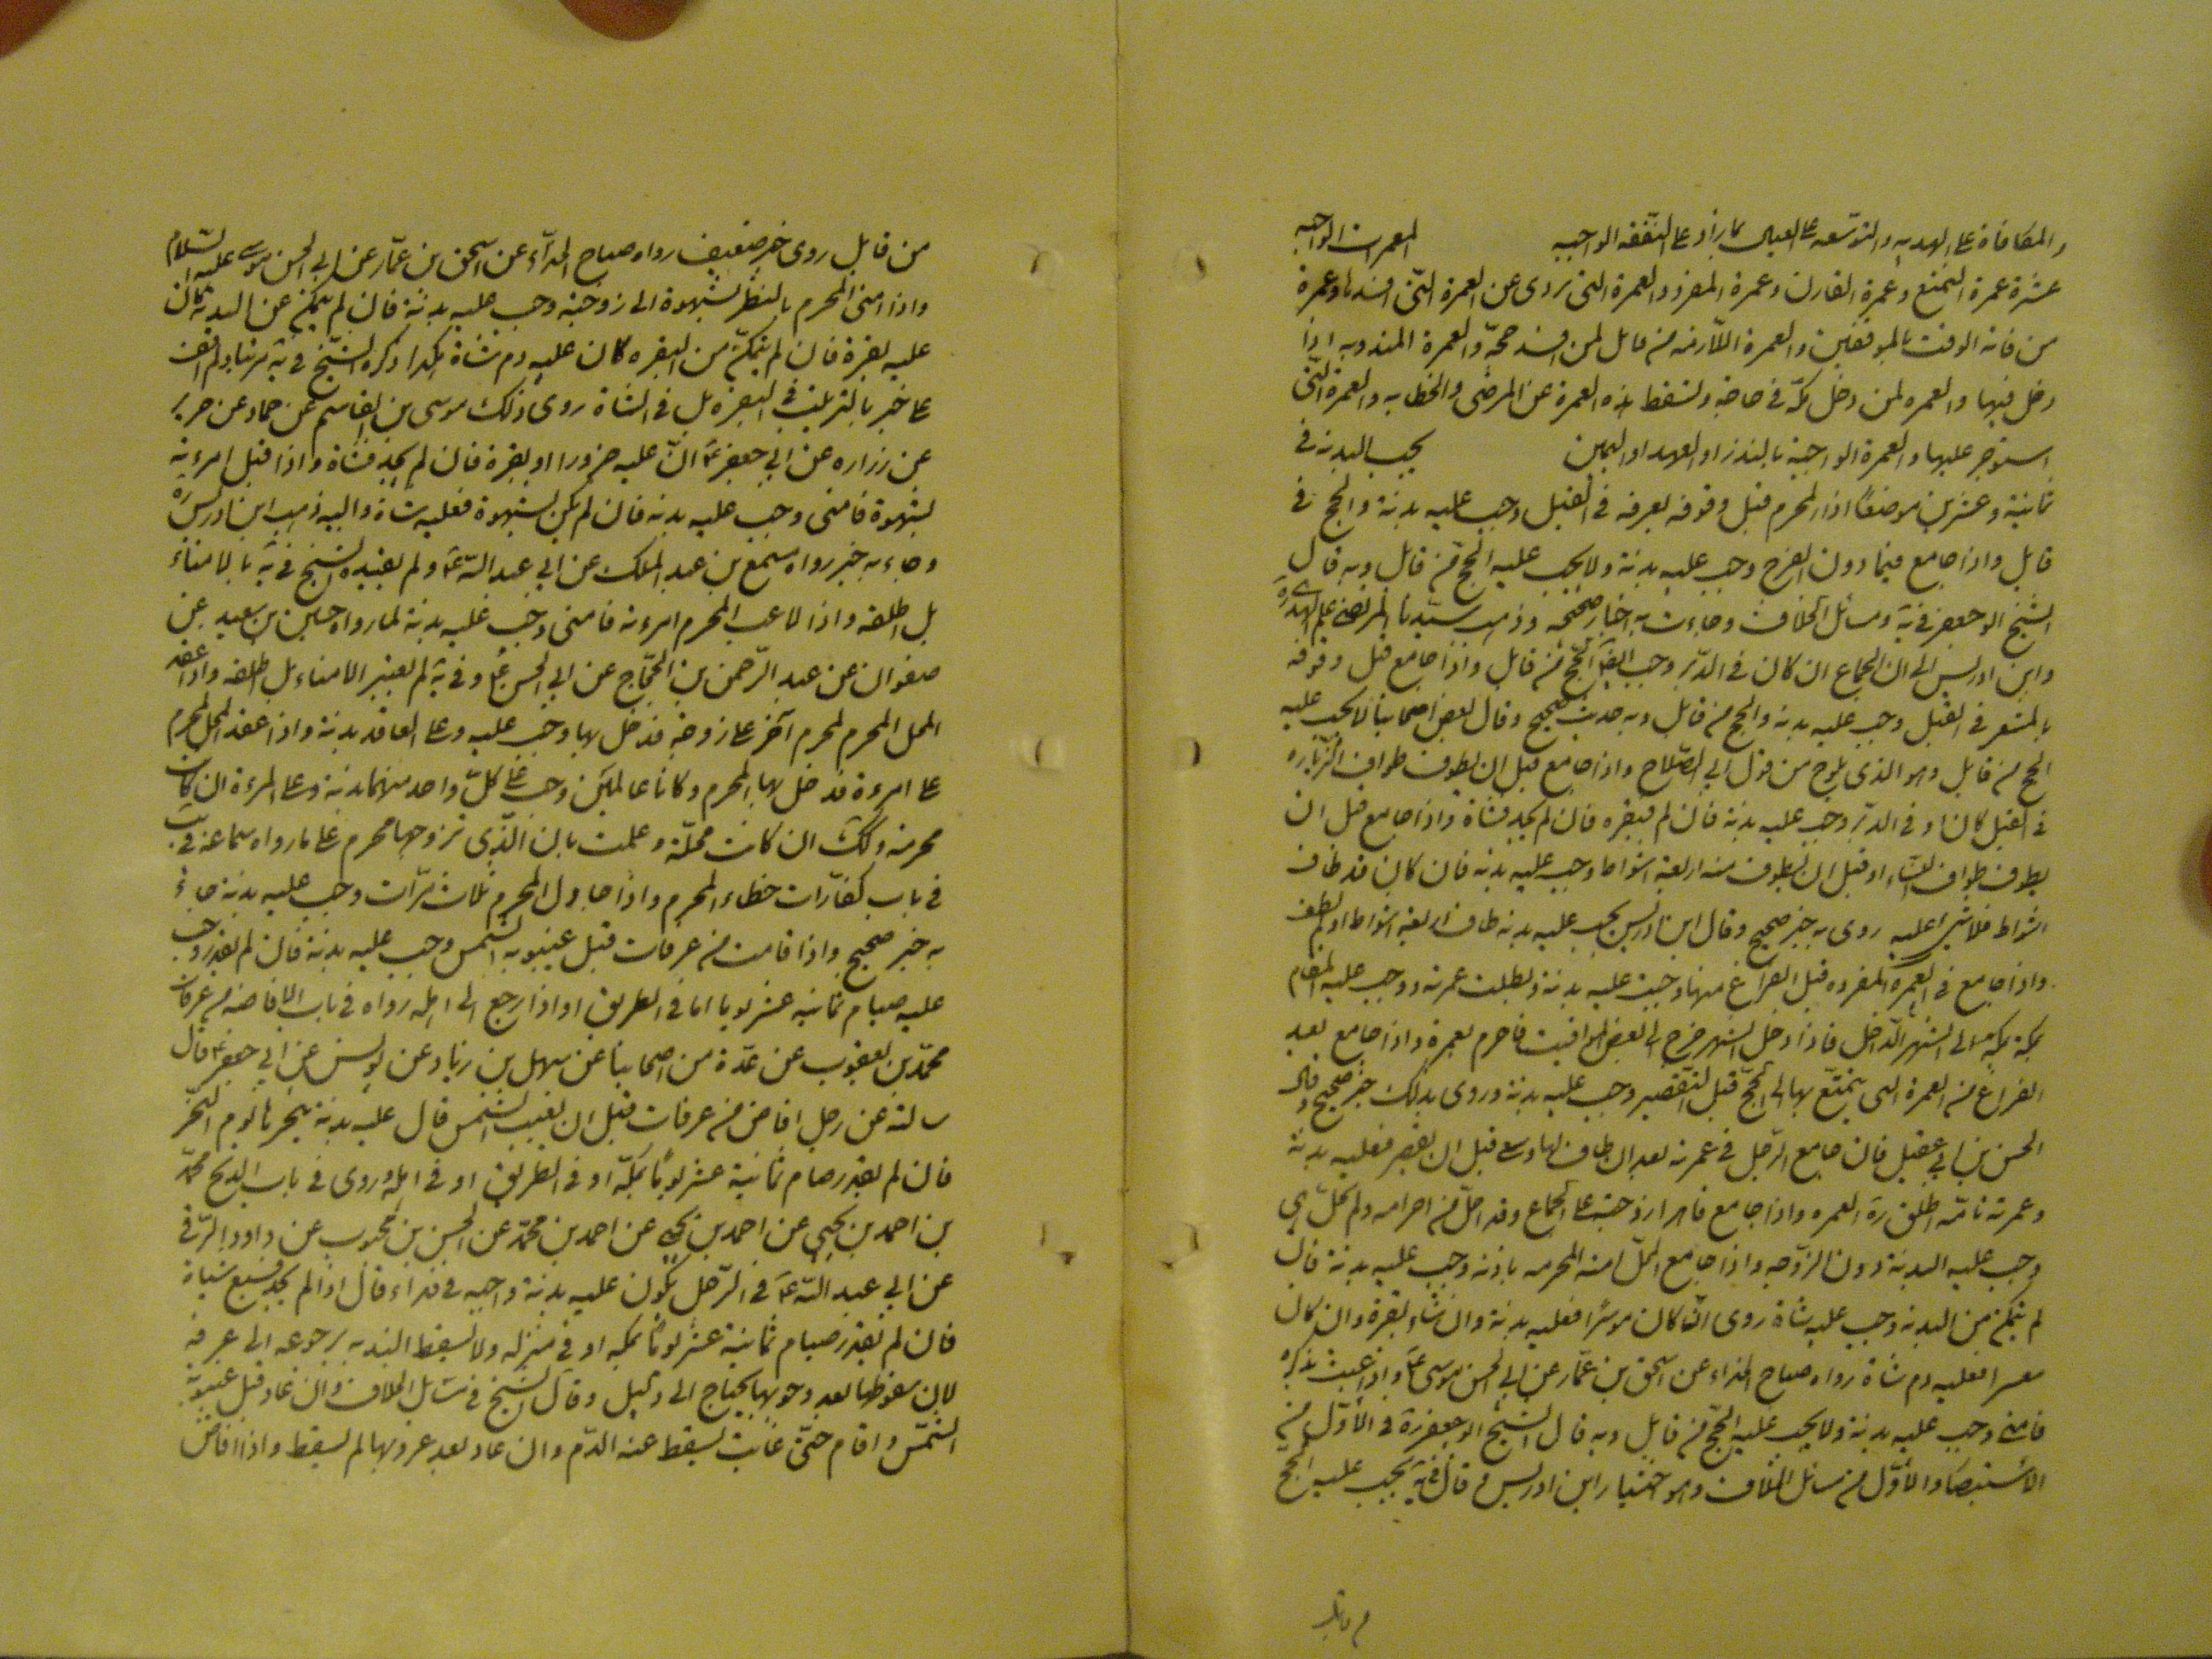 والمكافاة على الهديه والتوسعه على العيال بما زاد على النفقه الواجبيه العمرات الواجبه
عشرة عمرة التمتع وعمرة القارن وعمرة المفرد والعمرة التى تردى عن العمرة التى افسدها وعمرة
من فاته الوقت بالموقفين والعمرة اللازمه من قابل لمن افسد حجه والعمرة المندوبه اذا
دخل فيها والعمره لمن دخل مكة فى حاجة وتسقط هذه العمرة عن المرضى والحطابه والعمرة التى
استوجر عليها والعمرة الواجبة بالنذر او العهد او اليمين يجب البدنه فى
ثمانية وعشرين موضعا اذا المحرم قبل وقوفه بعرفه فى القبل وجب عليه بدنة والحج فى
قابل واذا جامع فيما دون الفرج وجب عليه بدنة ولا يجب عليه الحج من قابل وبه قال
الشيخ ابو جعفر فى ية ومسائل الخلاف وجاءت به اخبار صحيحه وذهب سيدنا المرتضى علم الهدى ره
وابن ادريس الى ان الجماع ان كان فى الدبر وجب ايضا الحج من قابل واذا جامع قبل وقوفه
بالمشعر فى القبل وجب عليه بدنه والحج من قابل وبه حديث صحيح وقال بعض اصحابنا لا يجب عليه
الحج من قابل وهو الذى يلوح من قول ابى الصلاح واذا جامع قبل ان يطوف طواف الزياره
فى القبل كان او فى الدبر وجب عليه بدنة فان لم فبقره فان لم يجد فشاة واذا جامع قبل ان
يطوف طواف النساء او قبل ان يطوف منه اربعة اشواط وجب عليه بدنه فان كان قد طاف
اشواط فلا شئ عليه روى به خبر صحيح وقال ابن ادريس يجب عليه بدنه طاف اربعة اشواط او لم يطف
واذا جامع فى العمرة المفرده قبل الفراغ منها وجبت عليه بدنة وبطلت عمرته ووجب عليه المقام
بمكة الى الشهر الداخل فاذا دخل الشهر خرج الى بعض المواقيت فاحرم بعمرة واذا جامع بعد
الفراغ من العمرة التى يتمتع بها الى الحج قبل التقصير وجب عليه بدنة وروى بذلك خبر صحيح وقال
الحسن بن ابى عقيل فان جامع الرجل فى عمرته بعد ان طاف لها وسعى قبل ان يقصر فعليه بدنة
وعمرته تامه اطلق ره العمره واذا جامع قاهرا زوجته على الجماع وقد احل من احرامه ولم تحل هى
وجب عليه البدنة دون الزوجه واذا جامع المحل امته المحرمه باذنه وجب عليه بدنة فان
لم يتمكن من البدنه وجب عليه شاة روى انه كان موسرا فعليه بدنة وان شاء بقرة وان كان
معسرا فعليه دم شاة رواه صباح الحذاء عن اسحق بن عمار عن ابى الحسن موسى ع واذا عبث بذكره
فامنى وجب عليه بدنة ولا يجب عليه الحج من قابل وبه قال الشيخ ابو جعفر ره فى الاول من
الاستبصار والاول من مسائل الخلاف وهو اختيار ابن ادريس وقال فى ية يجب عليه الحج
من قابل
من قابل روى خبر ضعيف رواه صباح الحذاء عن اسحق بن عمار عن ابى الحسن موسى عليه السلام
واذا امنى المحرم بالنظر لشهوة الى زوجته وجب عليه بدنة فان لم يتمكن عن البدنه كان
عليه بقرة فان لم يتمكن من البقره كان عليه دم شاة هكذا ذكره الشيخ فى ية مرتبا ولم اقف
على خبر بالترتيب فى البقره بل فى الشاة روى ذلك موسى بن القاسم عن حماد عن حريز
عن زراره عن ابى جعفر ع ان عليه جزورا او بقرة فان لم يجد فشاة واذا قبل امرءته
لشهوة فامنى وجب عليه بدنه فان لم يكن لشهوة فعليه شاة واليه ذهب ابن ادريس ره
وجاء به خبر رواه مسمع بن عبد الملك عن ابى عبد الله ع ولم يقيده الشيخ فى ية بالامناء
بل اطلقه واذا لاعب المحرم امرءته فامنى وجب عليه بدنة لما رواه حسين بن سعيد عن
صفوان عن عبد الرحمن بن الحجاج عن ابى الحسن ع وفى ية لم يعتبر الامناء بل اطلقه واذا عقد
المحل المحرم لمحرم آخر على زوجة فدخل بها وجب عليه وعلى العاقد بدنة واذا عقد المحل لمحرم
على امرءة فدخل بها المحرم وكانا عالمين وجب على كل واحد منهما بدنة وعلى المرءة ان كانت
محرمة وكذلك ان كانت محلة وعلمت بان الذى تزوجها محرم على ما رواه سماعة فى يب
فى باب كفارات خطاء المحرم واذا جادل المحرم ثلاث مرات وجب عليه بدنة جاء
به خبر صحيح واذا قامت من عرفات قبل غيبوبه الشمس وجب عليه بدنة فان لم يقدر وجب
عليه صيام ثمانيه عشر يوما اما فى الطريق او اذا رجع الى اهله رواه فى باب الافاضه من عرفات
محمد بن يعقوب عن عدة من اصحابنا عن سهل بن زياد عن يونس عن ابى جعفر ع قال
سالته عن رجل افاض من عرفات قبل ان يغيب الشمس قال عليه بدنة ينحرها يوم النحر
فان لم يقدر صام ثمانية عشر يوما بمكة او فى الطريق او فى اهله وروى فى باب الذبح محمد
بن احمد بن يحيى عن احمد بن يحيى عن احمد بن محمد عن الحسن بن محبوب عن داود الرقى
عن ابى عبد الله ع فى الرجل يكون عليه بدنة واجبه فى فداء قال اذا لم يجد فسبع شياة
فان لم يقدر صيام ثمانية عشر يوما بمكه او فى منزله ولا يسقط البدنه برجوعه الى عرفه
لان سقوطها بعد وجوبها يحتاج الى دليل وقال الشيخ فى مسائل الخلاف وان عاد قبل غيبوبة
الشمس واقام حتى غابت يسقط عنه الدم وان عاد بعد غروبها لم يسقط واذا افاض